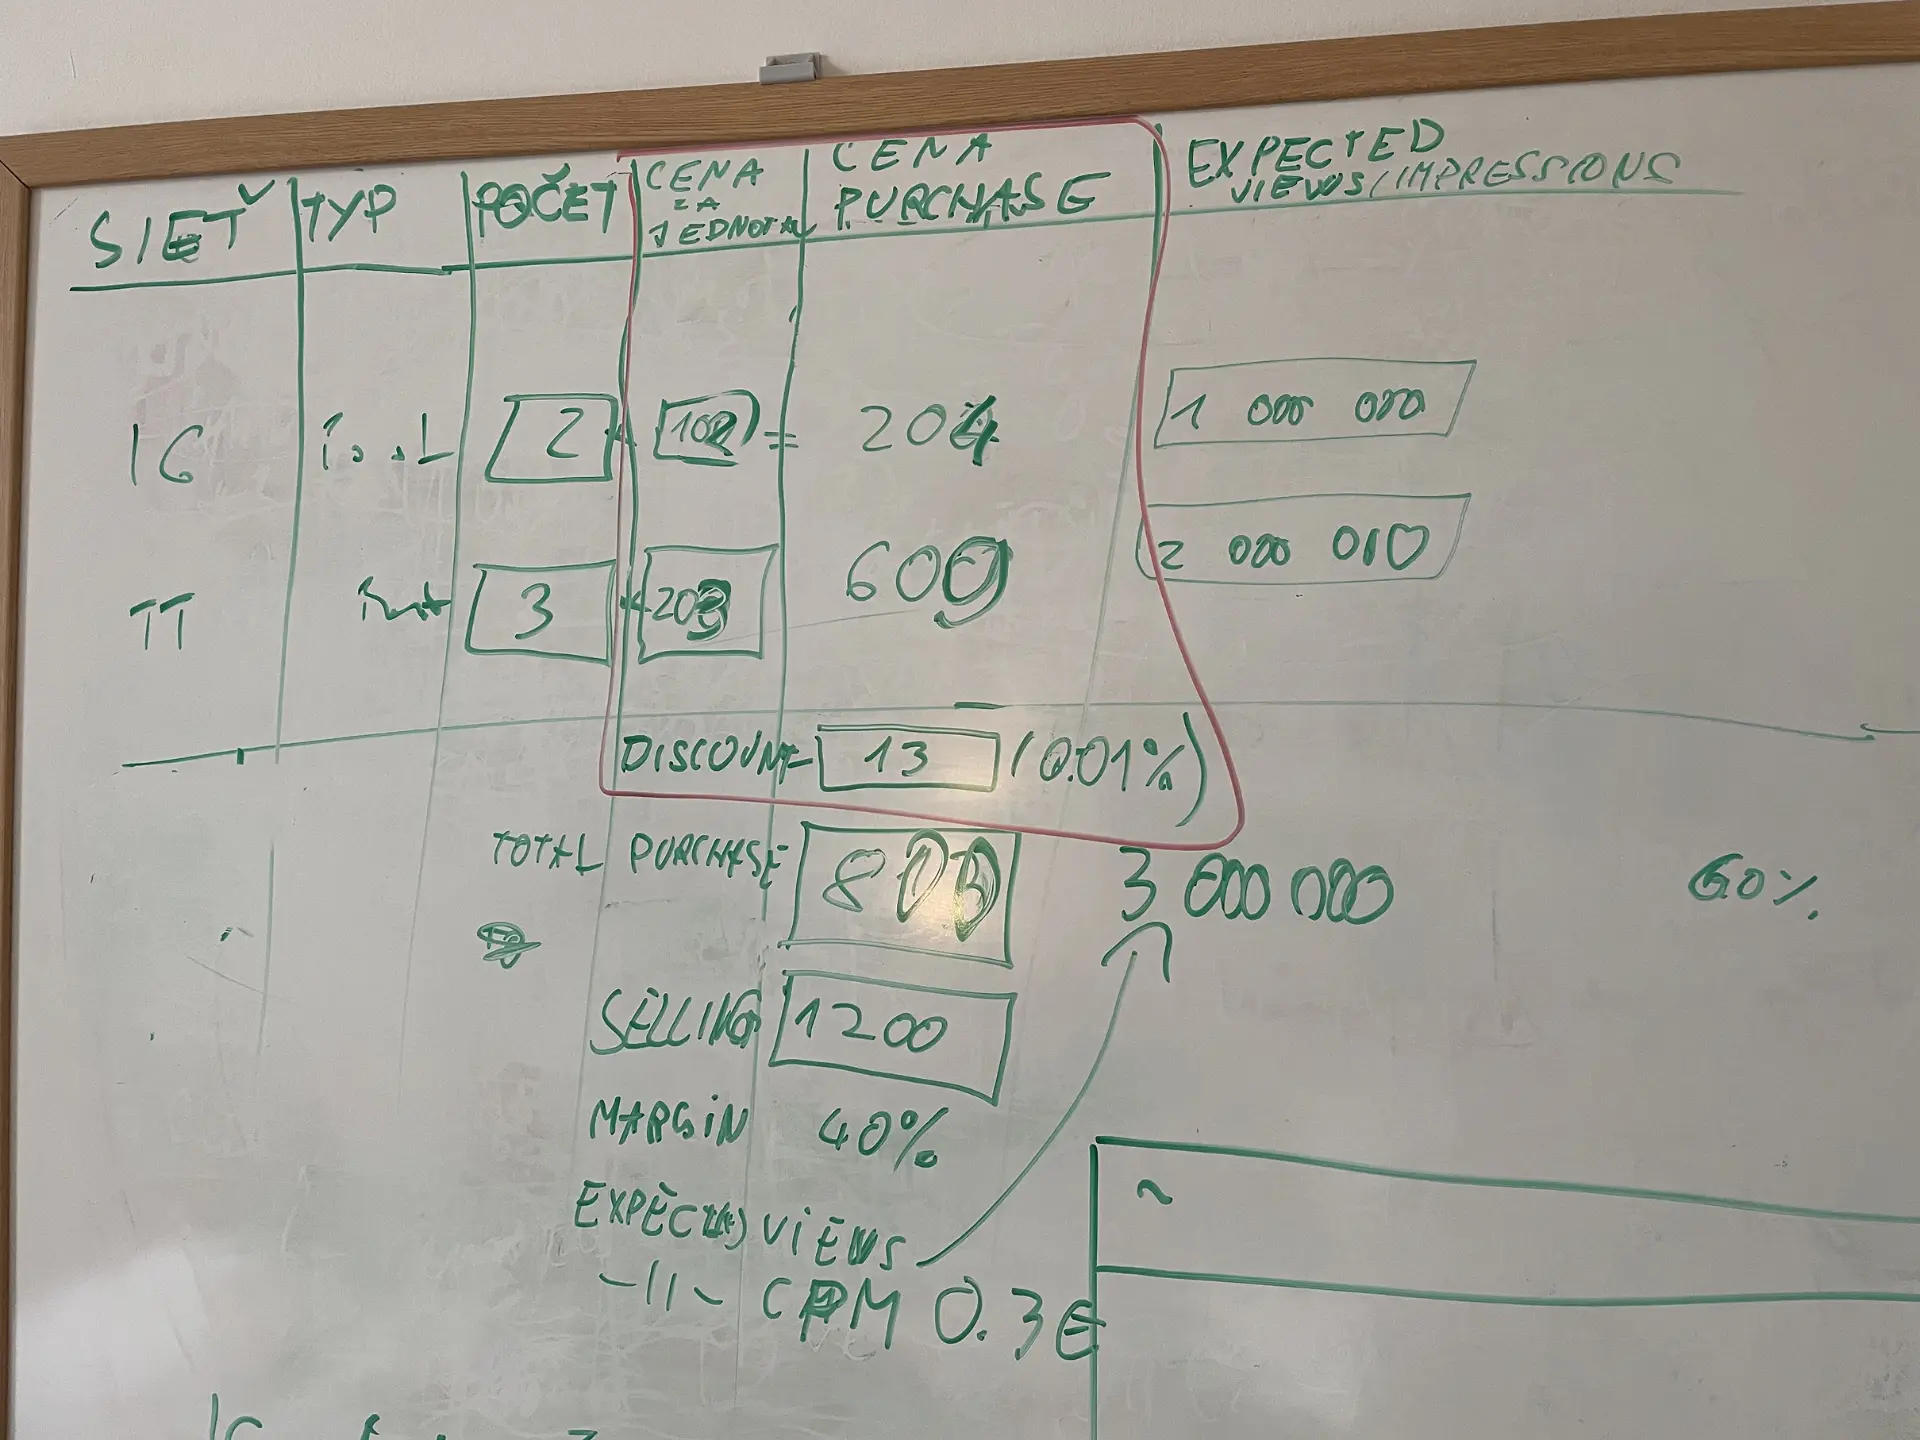 SIEŤ TYP POČET CENA ZA JEDNOTKU CENA PURCHASE EXPECTED VIEWS/IMPRESSIONS
IG 2 102 = 204 1 000 000
TT 3 203 609 2 000 010
DISCOUNT 13 (0.01%)
TOTAL PURCHASE 800 3 000 000 60%
SELLING 1200
MARGIN 40%
EXPECTED VIEWS
-11- CPM 0.3€